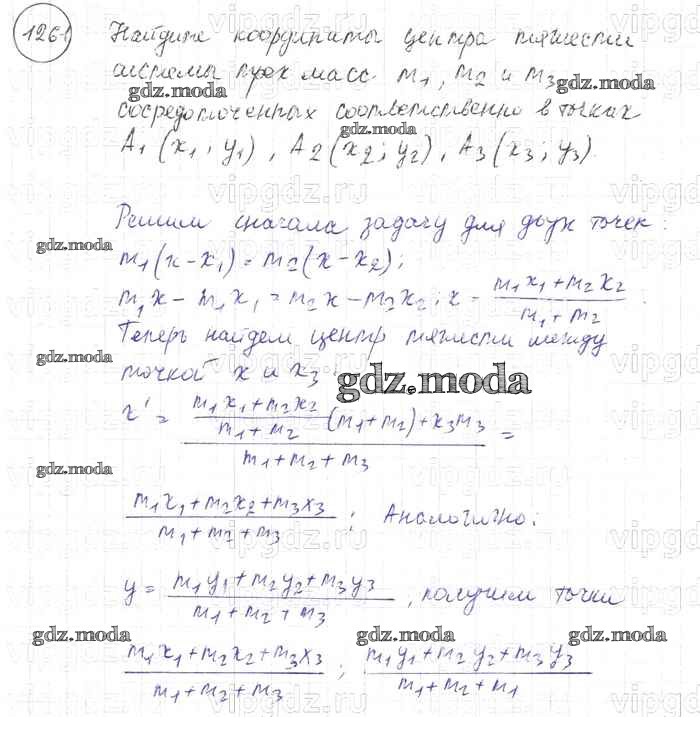 1261 Найдите координаты центра тяжести
системы трех масс m1, m2 и m3
сосредоточенных соответственно в точках
A1 (x1; y1), A2 (x2; y2), A3 (x3; y3)
Решим сначала задачу для двух точек:
m1(x-x1) = m2(x-x2);
m1x - m1x1 = m2x - m2x2; x = (m1x1+m2x2)/(m1+m2)
Теперь найдем центр тяжести между
точкой x и x3:
x' = ((m1x1+m2x2)/(m1+m2) (m1+m2)+x3m3)/(m1+m2+m3) =
(m1x1+m2x2+m3x3)/(m1+m2+m3); Аналогично:
y = (m1y1+m2y2+m3y3)/(m1+m2+m3), получим точки
(m1x1+m2x2+m3x3)/(m1+m2+m3); (m1y1+m2y2+m3y3)/(m1+m2+m1)
gdz.moda
vipgdz.ru